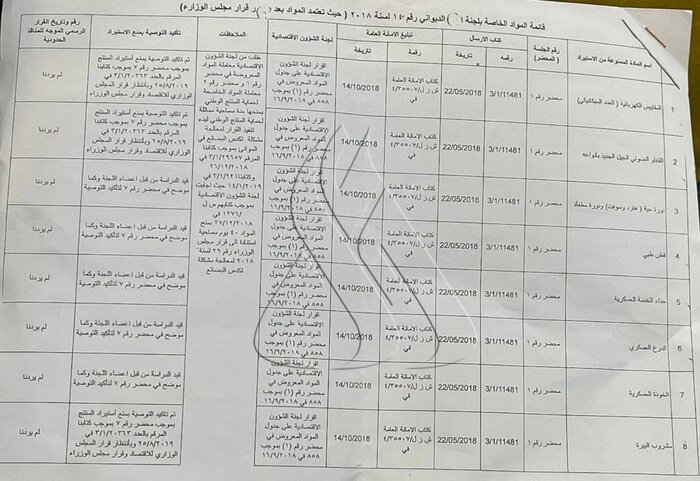 قائمة المواد الخاصة بلجنة الديواني رقم ١٤٠ لسنة ٢٠١٨ ( حيث تعتمد المواد بعد قرار مجلس الوزراء)
اسم المادة الممنوعة من الاستيراد
رقم الجلسة (المحضر)
كتاب الارسال
رقمه
تاريخه
تبليغ الامانة العامة
رقمه
تاريخه
لجنة الشؤون الاقتصادية
الملاحظات
تأكيد التوصية بمنع الاستيراد
رقم وتاريخ القرار الرسمي الموجه للمنافذ الحدودية
1
المقاييس الكهربائية ( العدد الميكانيكي)
محضر رقم ١
3/1/11481
22/05/2018
كتاب الامانة العامة
ش ز ل/٤/٣٥٥٠٧
في
14/10/2018
اقرار لجنة الشؤون
الاقتصادية على جدول
المواد المعروض في
محضر رقم (١) بموجب
٨٥٨ في ١٦/٩/٢٠١٨
طلب من لجنة الشؤون
الاقتصادية معاملة المواد
المعروضة في محضر
رقم ١ و محضر ٢
معاملة المواد الخاصة
لحماية المنتج الوطني
يمنحها مدة سماحية مماثلة
لحماية المنتج الوطني لبدء
تنفيذ القرار لمعالجة
مشكلة تكدس البضائع في
الموانئ بموجب كتابنا
٣/١/٢٩٦٥٧ في
٢٦/١٢/٢٠١٨
وكتابنا ٣/١/٩٢١ في
١٤/١/٢٠١٩ حيث اجابت
لجنة الشؤون الاقتصادية
بموجب كتابهم س ل
/١٢٧٦ في
٢٧/١٢/٢٠١٨
المواد ٤٠ يوم سماحية
استنادا الى قرار مجلس
الوزراء رقم ٢٩ لسنة
٢٠١٨ لمعالجة مشكلة
تكدس البضائع
تم تاكيد التوصية بمنع أستيراد المنتج
بموجب محضر رقم ٧ بموجب كتابنا
المرقم بالعدد ٣/١/٢٠٣٦٣ في
٢٥/٨/٢٠١٩ وبأنتظار قرار المجلس
الوزاري للاقتصاد وقرار مجلس الوزراء
لم يردنا
2
القابلو الضوئي الجيل الجديد بأنواعه
محضر رقم ١
3/1/11481
22/05/2018
كتاب الامانة العامة
ش ز ل/٤/٣٥٥٠٧
في
14/10/2018
اقرار لجنة الشؤون
الاقتصادية على جدول
المواد المعروض في
محضر رقم (١) بموجب
٨٥٨ في ١٦/٩/٢٠١٨
تم تاكيد التوصية بمنع أستيراد المنتج
بموجب محضر رقم ٧ بموجب كتابنا
المرقم بالعدد ٣/١/٢٠٣٦٣ في
٢٥/٨/٢٠١٩ وبأنتظار قرار المجلس
الوزاري للاقتصاد وقرار مجلس الوزراء
لم يردنا
3
نورة حية ( هارد وسوفت) ونورة مطفأة
محضر رقم ١
3/1/11481
22/05/2018
كتاب الامانة العامة
ش ز ل/٤/٣٥٥٠٧
في
14/10/2018
اقرار لجنة الشؤون
الاقتصادية على جدول
المواد المعروض في
محضر رقم (١) بموجب
٨٥٨ في ١٦/٩/٢٠١٨
قيد الدراسة من قبل اعضاء اللجنة وكما
موضح في محضر رقم ٧ لتأكيد التوصية
لم يردنا
4
قطن طبي
محضر رقم ١
3/1/11481
22/05/2018
كتاب الامانة العامة
ش ز ل/٤/٣٥٥٠٧
في
14/10/2018
اقرار لجنة الشؤون
الاقتصادية على جدول
المواد المعروض في
محضر رقم (١) بموجب
٨٥٨ في ١٦/٩/٢٠١٨
قيد الدراسة من قبل اعضاء اللجنة وكما
موضح في محضر رقم ٧ لتأكيد التوصية
لم يردنا
5
حذاء الخدمة العسكرية
محضر رقم ١
3/1/11481
22/05/2018
كتاب الامانة العامة
ش ز ل/٤/٣٥٥٠٧
في
14/10/2018
اقرار لجنة الشؤون
الاقتصادية على جدول
المواد المعروض في
محضر رقم (١) بموجب
٨٥٨ في ١٦/٩/٢٠١٨
قيد الدراسة من قبل اعضاء اللجنة وكما
موضح في محضر رقم ٧ لتأكيد التوصية
لم يردنا
6
الدرع العسكري
محضر رقم ١
3/1/11481
22/05/2018
كتاب الامانة العامة
ش ز ل/٤/٣٥٥٠٧
في
14/10/2018
اقرار لجنة الشؤون
الاقتصادية على جدول
المواد المعروض في
محضر رقم (١) بموجب
٨٥٨ في ١٦/٩/٢٠١٨
قيد الدراسة من قبل اعضاء اللجنة وكما
موضح في محضر رقم ٧ لتأكيد التوصية
لم يردنا
7
الخوذة العسكرية
محضر رقم ١
3/1/11481
22/05/2018
كتاب الامانة العامة
ش ز ل/٤/٣٥٥٠٧
في
14/10/2018
اقرار لجنة الشؤون
الاقتصادية على جدول
المواد المعروض في
محضر رقم (١) بموجب
٨٥٨ في ١٦/٩/٢٠١٨
قيد الدراسة من قبل اعضاء اللجنة وكما
موضح في محضر رقم ٧ لتأكيد التوصية
لم يردنا
8
مشروب البيرة
محضر رقم ١
3/1/11481
22/05/2018
كتاب الامانة العامة
ش ز ل/٤/٣٥٥٠٧
في
14/10/2018
اقرار لجنة الشؤون
الاقتصادية على جدول
المواد المعروض في
محضر رقم (١) بموجب
٨٥٨ في ١٦/٩/٢٠١٨
تم تاكيد التوصية بمنع أستيراد المنتج
بموجب محضر رقم ٧ بموجب كتابنا
المرقم بالعدد ٣/١/٢٠٣٦٣ في
٢٥/٨/٢٠١٩ وبأنتظار قرار المجلس
الوزاري للاقتصاد وقرار مجلس الوزراء
لم يردنا